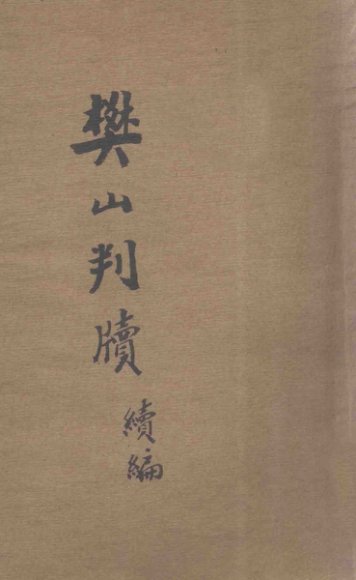 樊山判牘
續編